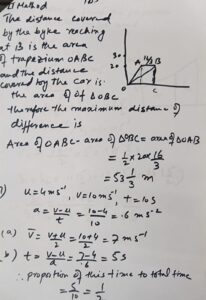 II Method
The distance covered
by the byke reaching
at B is the area
of trapezium OABC
and the distance
covered by the car is
the area of ΔOBC
therefore the maximum distance of
difference is
30
20
A
B
O
C
Area of OABC - area of ΔOBC = area of ΔOAB
= 1/2 x 20 x 16/3
= 53 1/3 m
u = 4 ms⁻¹, v = 10 ms⁻¹, t = 10s
a = v-u/t = 10-4/10 = .6 ms⁻²
(a) v̄ = v+u/2 = 10+4/2 = 7 ms⁻¹
(b) t = v-u/a = 7-4/.6 = 5s
∴ proportion of this time to total time
= 5/10 = 1/2